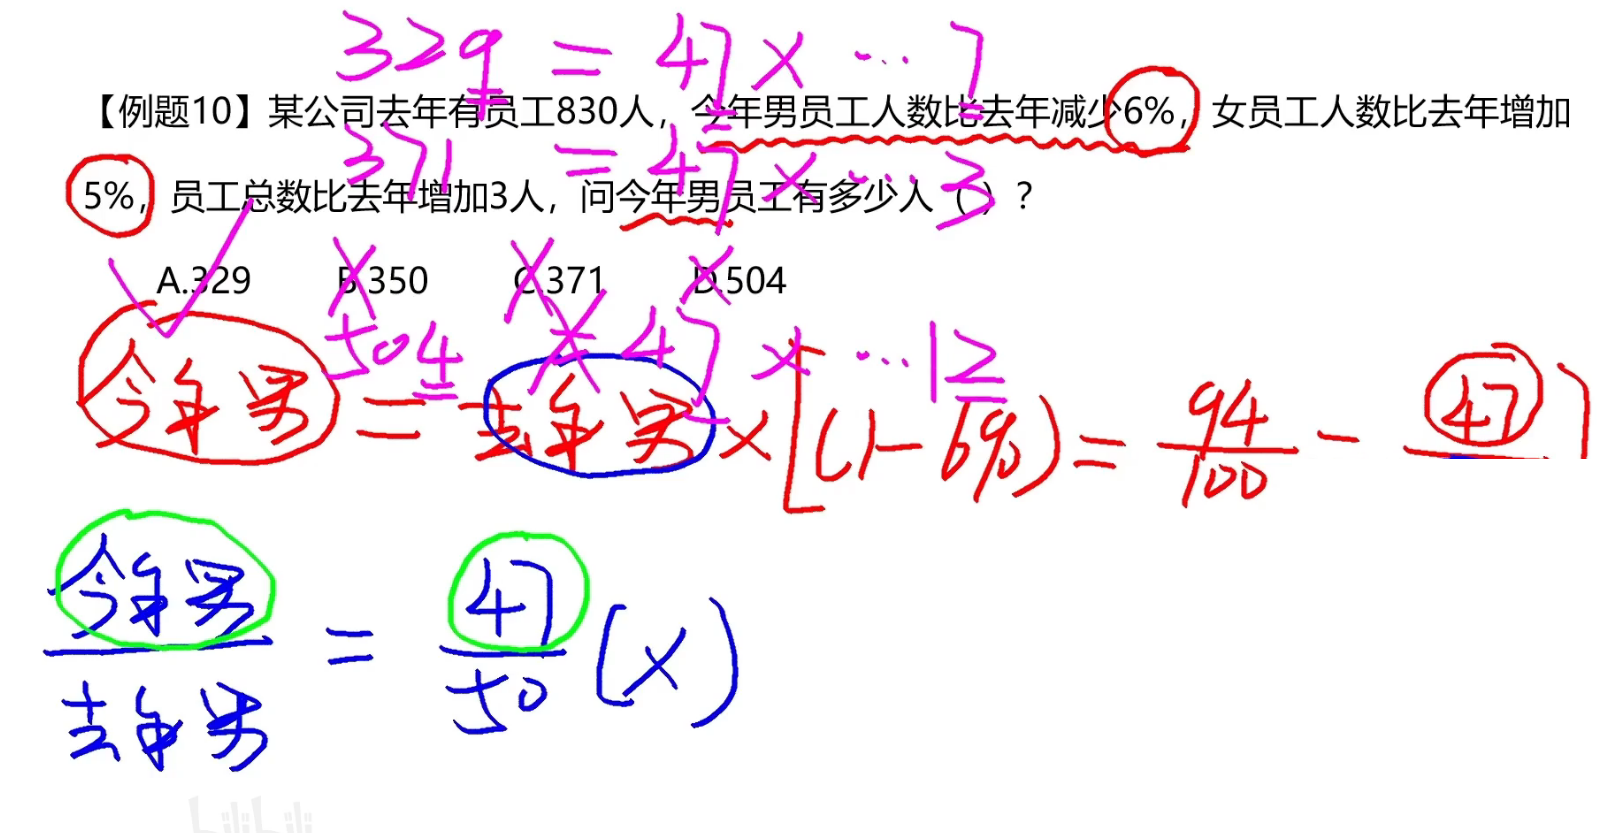 329 = 47 × … 7
【例题10】某公司去年有员工830人，今年男员工人数比去年减少6%，女员工人数比去年增加
371 = 47 × … 3
5%，员工总数比去年增加3人，问今年男员工有多少人（ ）？
A.329 B.350 C.371 D.504
504 = 47 × … 12
今年男 = 去年男 × [(1-6%) = 94/100 - 47
今年男/去年男 = 47/50 (x)
bilibili